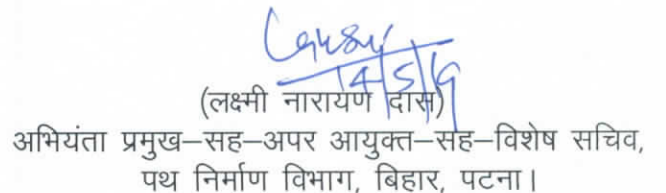 14/5/19
(लक्ष्मी नारायण दास)
अभियंता प्रमुख–सह–अपर आयुक्त–सह–विशेष सचिव,
पथ निर्माण विभाग, बिहार, पटना।